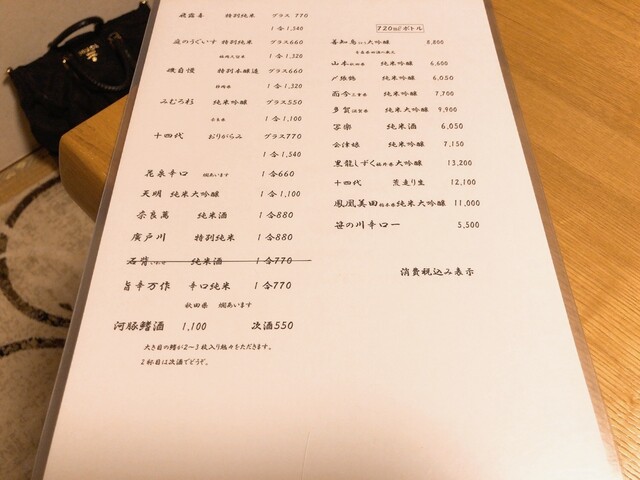 飛露喜 特別純米 グラス 770
1合1,540
庭のうぐいす 特別純米 グラス660
1合1,320
磯自慢 特別本醸造 グラス660
静岡県 1合1,320
みむろ杉 純米吟醸 グラス550
奈良県 1合1,100
十四代 おりがらみ グラス770
1合1,540
花泉辛口 燗あいます 1合660
天明 純米大吟醸 1合1,100
奈良萬 純米酒 1合880
廣戸川 特別純米 1合880
石背 いわせ 純米酒 1合770
旨辛万作 辛口純米 1合770
秋田県 燗あいます
河豚鰭酒 1,100 次酒550
大き目の鰭が2〜3枚入り
2杯目は次酒でどうぞ。
720mlボトル
善知鳥 大吟醸 8,800
山本 秋田県 純米吟醸 6,600
〆張鶴 純米吟醸 6,050
而今 三重県 純米吟醸 7,700
多賀 滋賀県 純米大吟醸 9,900
写楽 純米酒 6,050
会津娘 純米吟醸 7,150
黒龍しずく 福井県 大吟醸 13,200
十四代 荒走り生 12,100
鳳凰美田 栃木県 純米大吟醸 11,000
笹の川辛口一 5,500
消費税込み表示